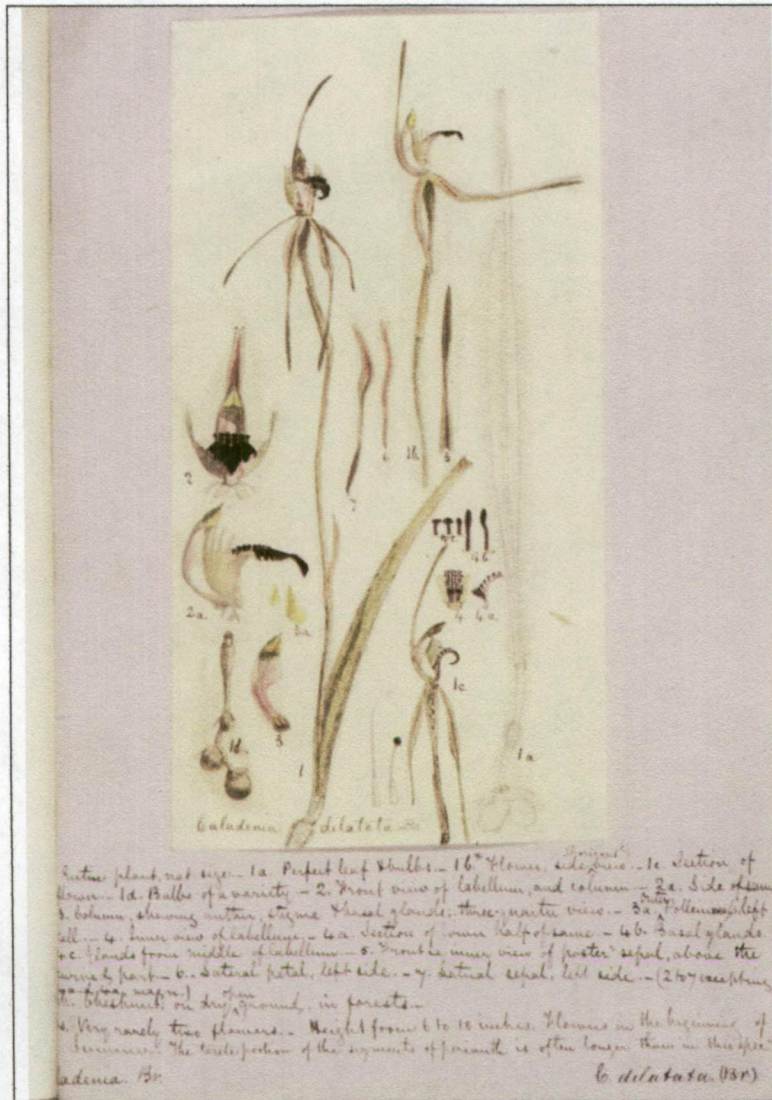 2
6
1b
5
7
4c
4b
2a
3a
4
4a
1d
3
1c
1
1a
Caladenia dilatata
Entire plant, nat size – 1a. Perfect leaf & bulbs – 1b. Flower, side view – 1c. Section of
flower – 1d. Bulbs of a variety – 2. Front view of labellum, and column – 2a. Side of same
3. Column, shewing anther, stigma & basal glands; three-quarter view – 3a. Pollen left
cell – 4. Inner view of labellum – 4a. Section of lower half of same – 4b. Basal glands
4c. Glands from middle of labellum – 5. Front or inner view of poster sepal, above the
curved part – 6. Lateral petal, left side. – 7. Lateral sepal, left side – (2 to 7 excepting
magn.)
Cheshunt on dry open ground, in forests –
Very rarely two flowers. – Height from 6 to 18 inches. Flowers in the beginning of
Summer. The terete portion of the segments of perianth is often longer than in this
ladenia. Br.
C. dilatata (Br.)